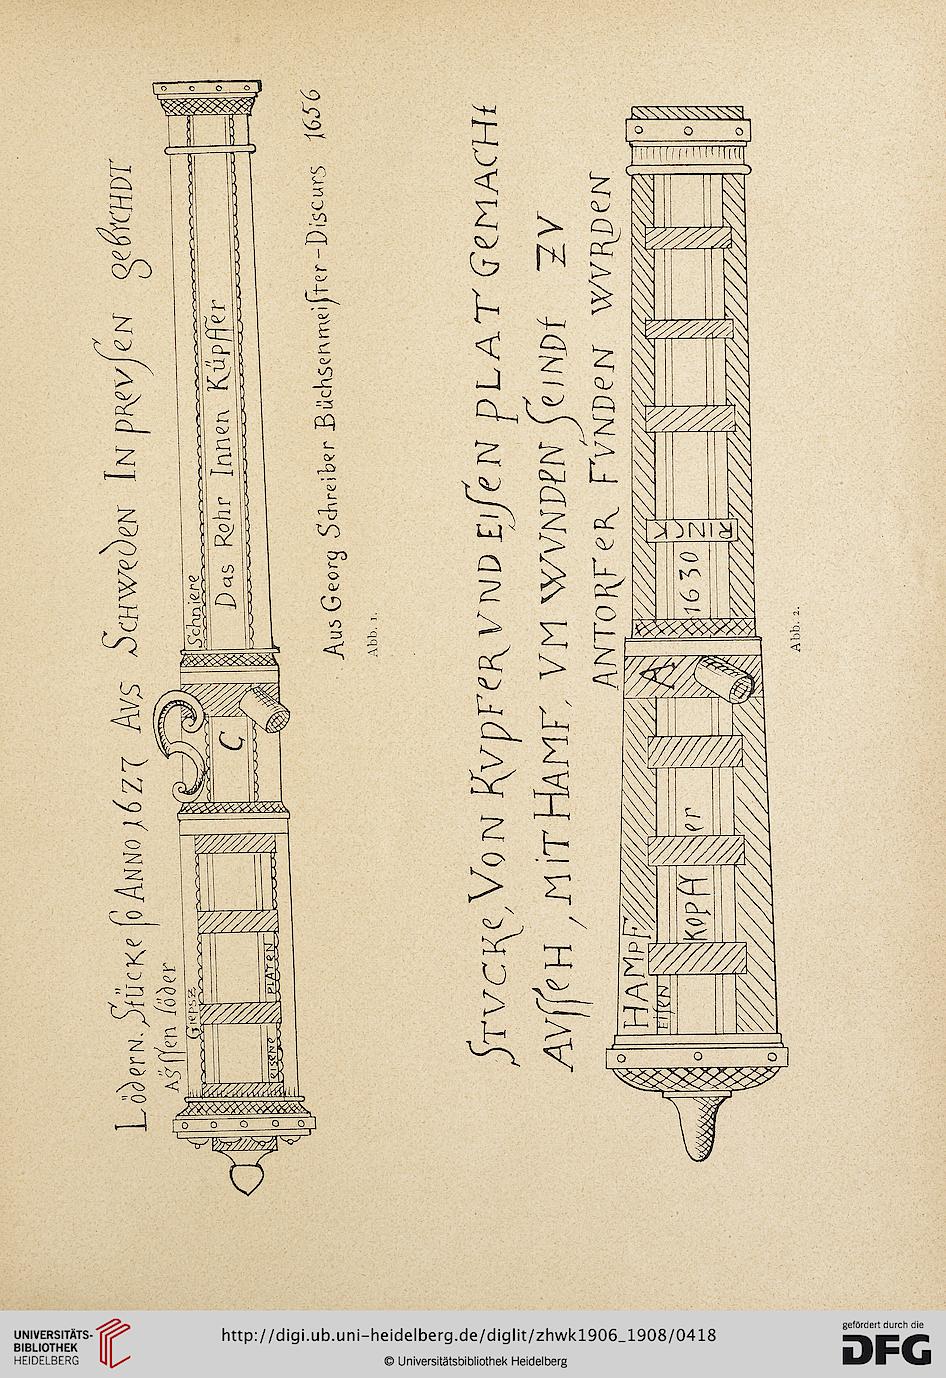 Lödern. Stücke so ANNO 1627 AVS SCHWeden IN preVsen gebrCHDT
Aÿssen löder
Giepsz
PLATEN
eisene
C
Schniere
Das Rohr Innen Küpffer
Aus Georg Schreiber Büchsenmeister-Discurs 1656
Abb. 1.
STVCKe, VON KVPFeR VND Eisen PLAT GeMACHt
AVSSeH, MiT HAMF, VM WVNDeN SeINDt ZV
ANTORFeR FVNDeN WVRDeN
HAMPF
Eisen
KOPffer
A
1630
RINCK
Abb. 2.
UNIVERSITÄTS-
BIBLIOTHEK
HEIDELBERG
http://digi.ub.uni-heidelberg.de/diglit/zhwk1906_1908/0418
© Universitätsbibliothek Heidelberg
gefördert durch die
DFG